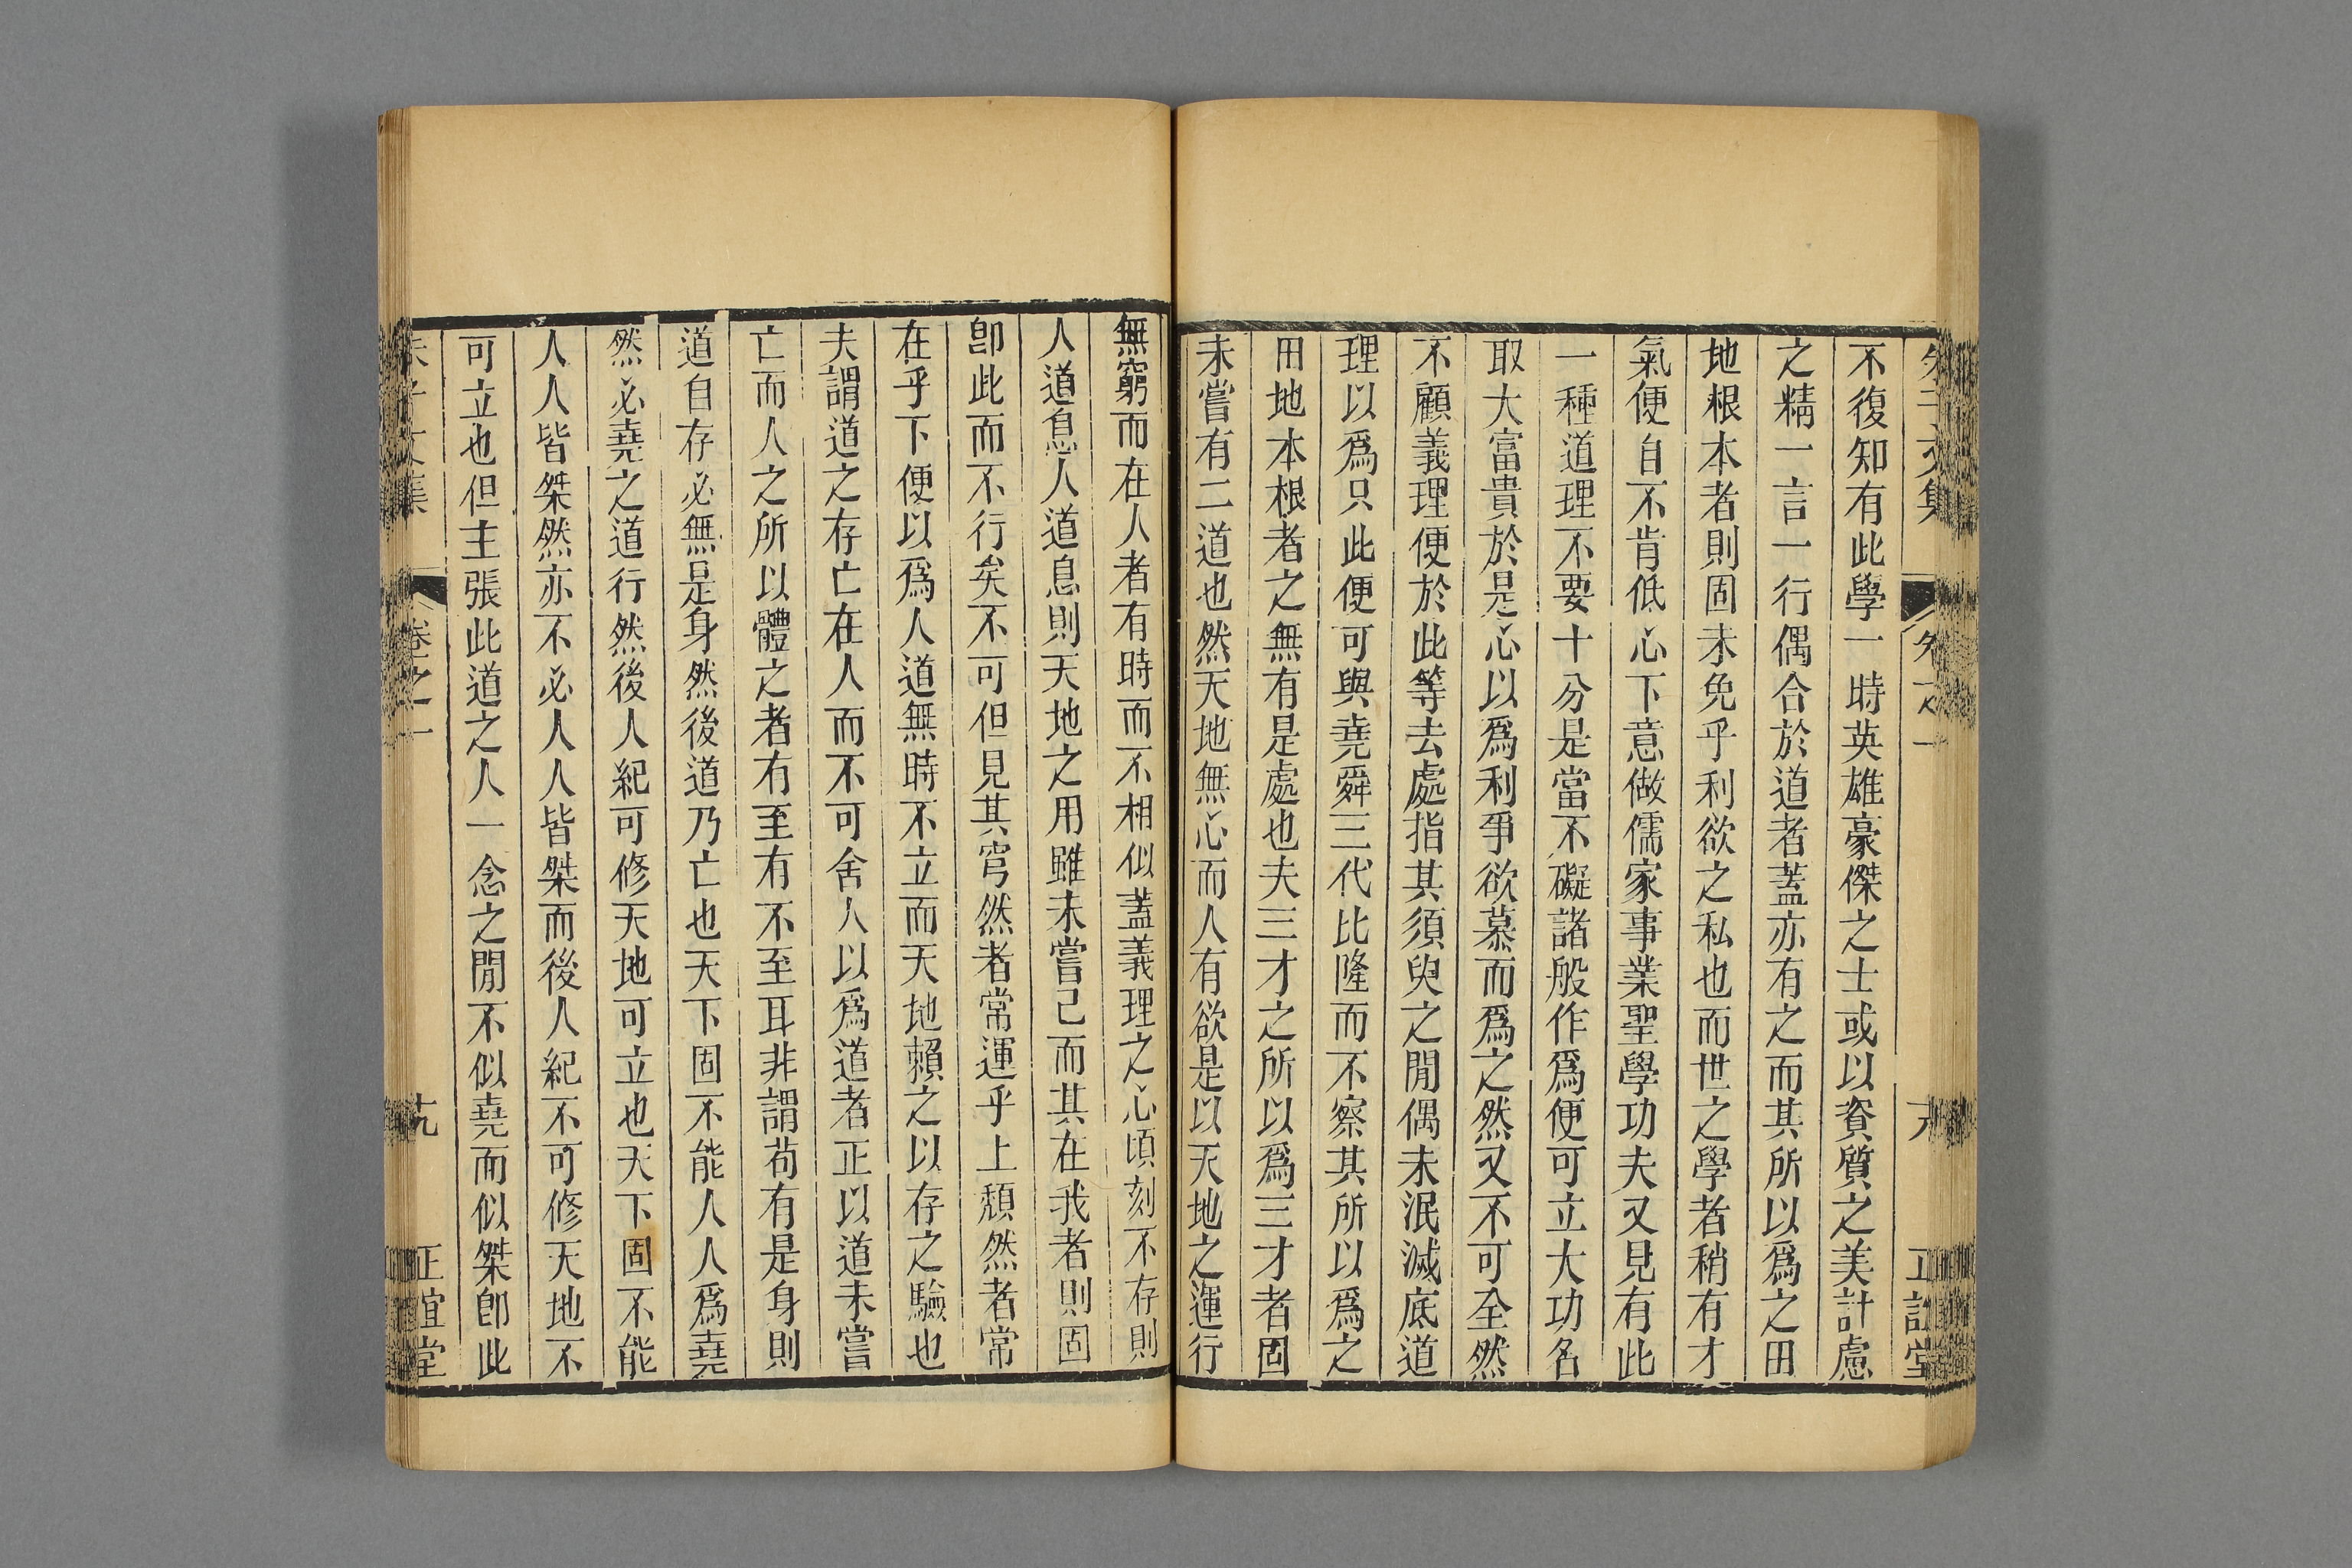 不復知有此學一時英雄豪傑之士或以資質之美計慮
之精一言一行偶合於道者蓋亦有之而其所以爲之田
地根本者則固未免乎利欲之私也而世之學者稍有才
氣便自不肯低心下意做儒家事業聖學功夫又見有此
一種道理不要十分是當不礙諸般作爲便可立大功名
取大富貴於是心以爲利爭欲慕而爲之然又不可全然
不顧義理便於此等去處指其須臾之閒偶未泯滅底道
理以爲只此便可與堯舜三代比隆而不察其所以爲之
田地本根者之無有是處也夫三才之所以爲三才者固
未嘗有二道也然天地無心而人有欲是以天地之運行
無窮而在人者有時而不相似蓋義理之心頃刻不存則
人道息人道息則天地之用雖未嘗已而其在我者則固
卽此而不行矣不可但見其穹然者常運乎上頹然者常
在乎下便以爲人道無時不立而天地賴之以存之驗也
夫謂道之存亡在人而不可舍人以爲道者正以道未嘗
亡而人之所以體之者有至有不至耳非謂苟有是身則
道自存必無是身然後道乃亡也天下固不能人人爲堯
然必堯之道行然後人紀可修天地可立也天下固不能
人人皆桀然亦不必人人皆桀而後人紀不可修天地不
可立也但主張此道之人一念之閒不似堯而似桀卽此
朱子文集 卷之一 十九 正誼堂